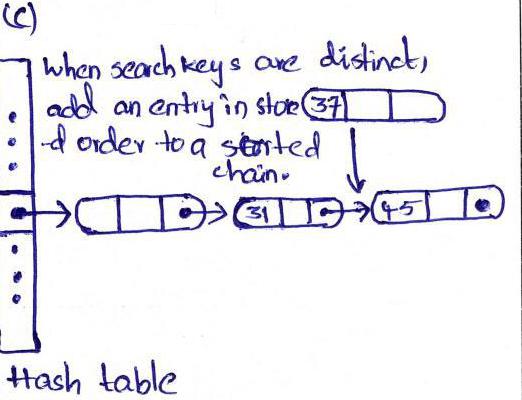 (c)
When search keys are distinct,
add an entry in store
37
-d order to a sorted
chain.
31
45
Hash table